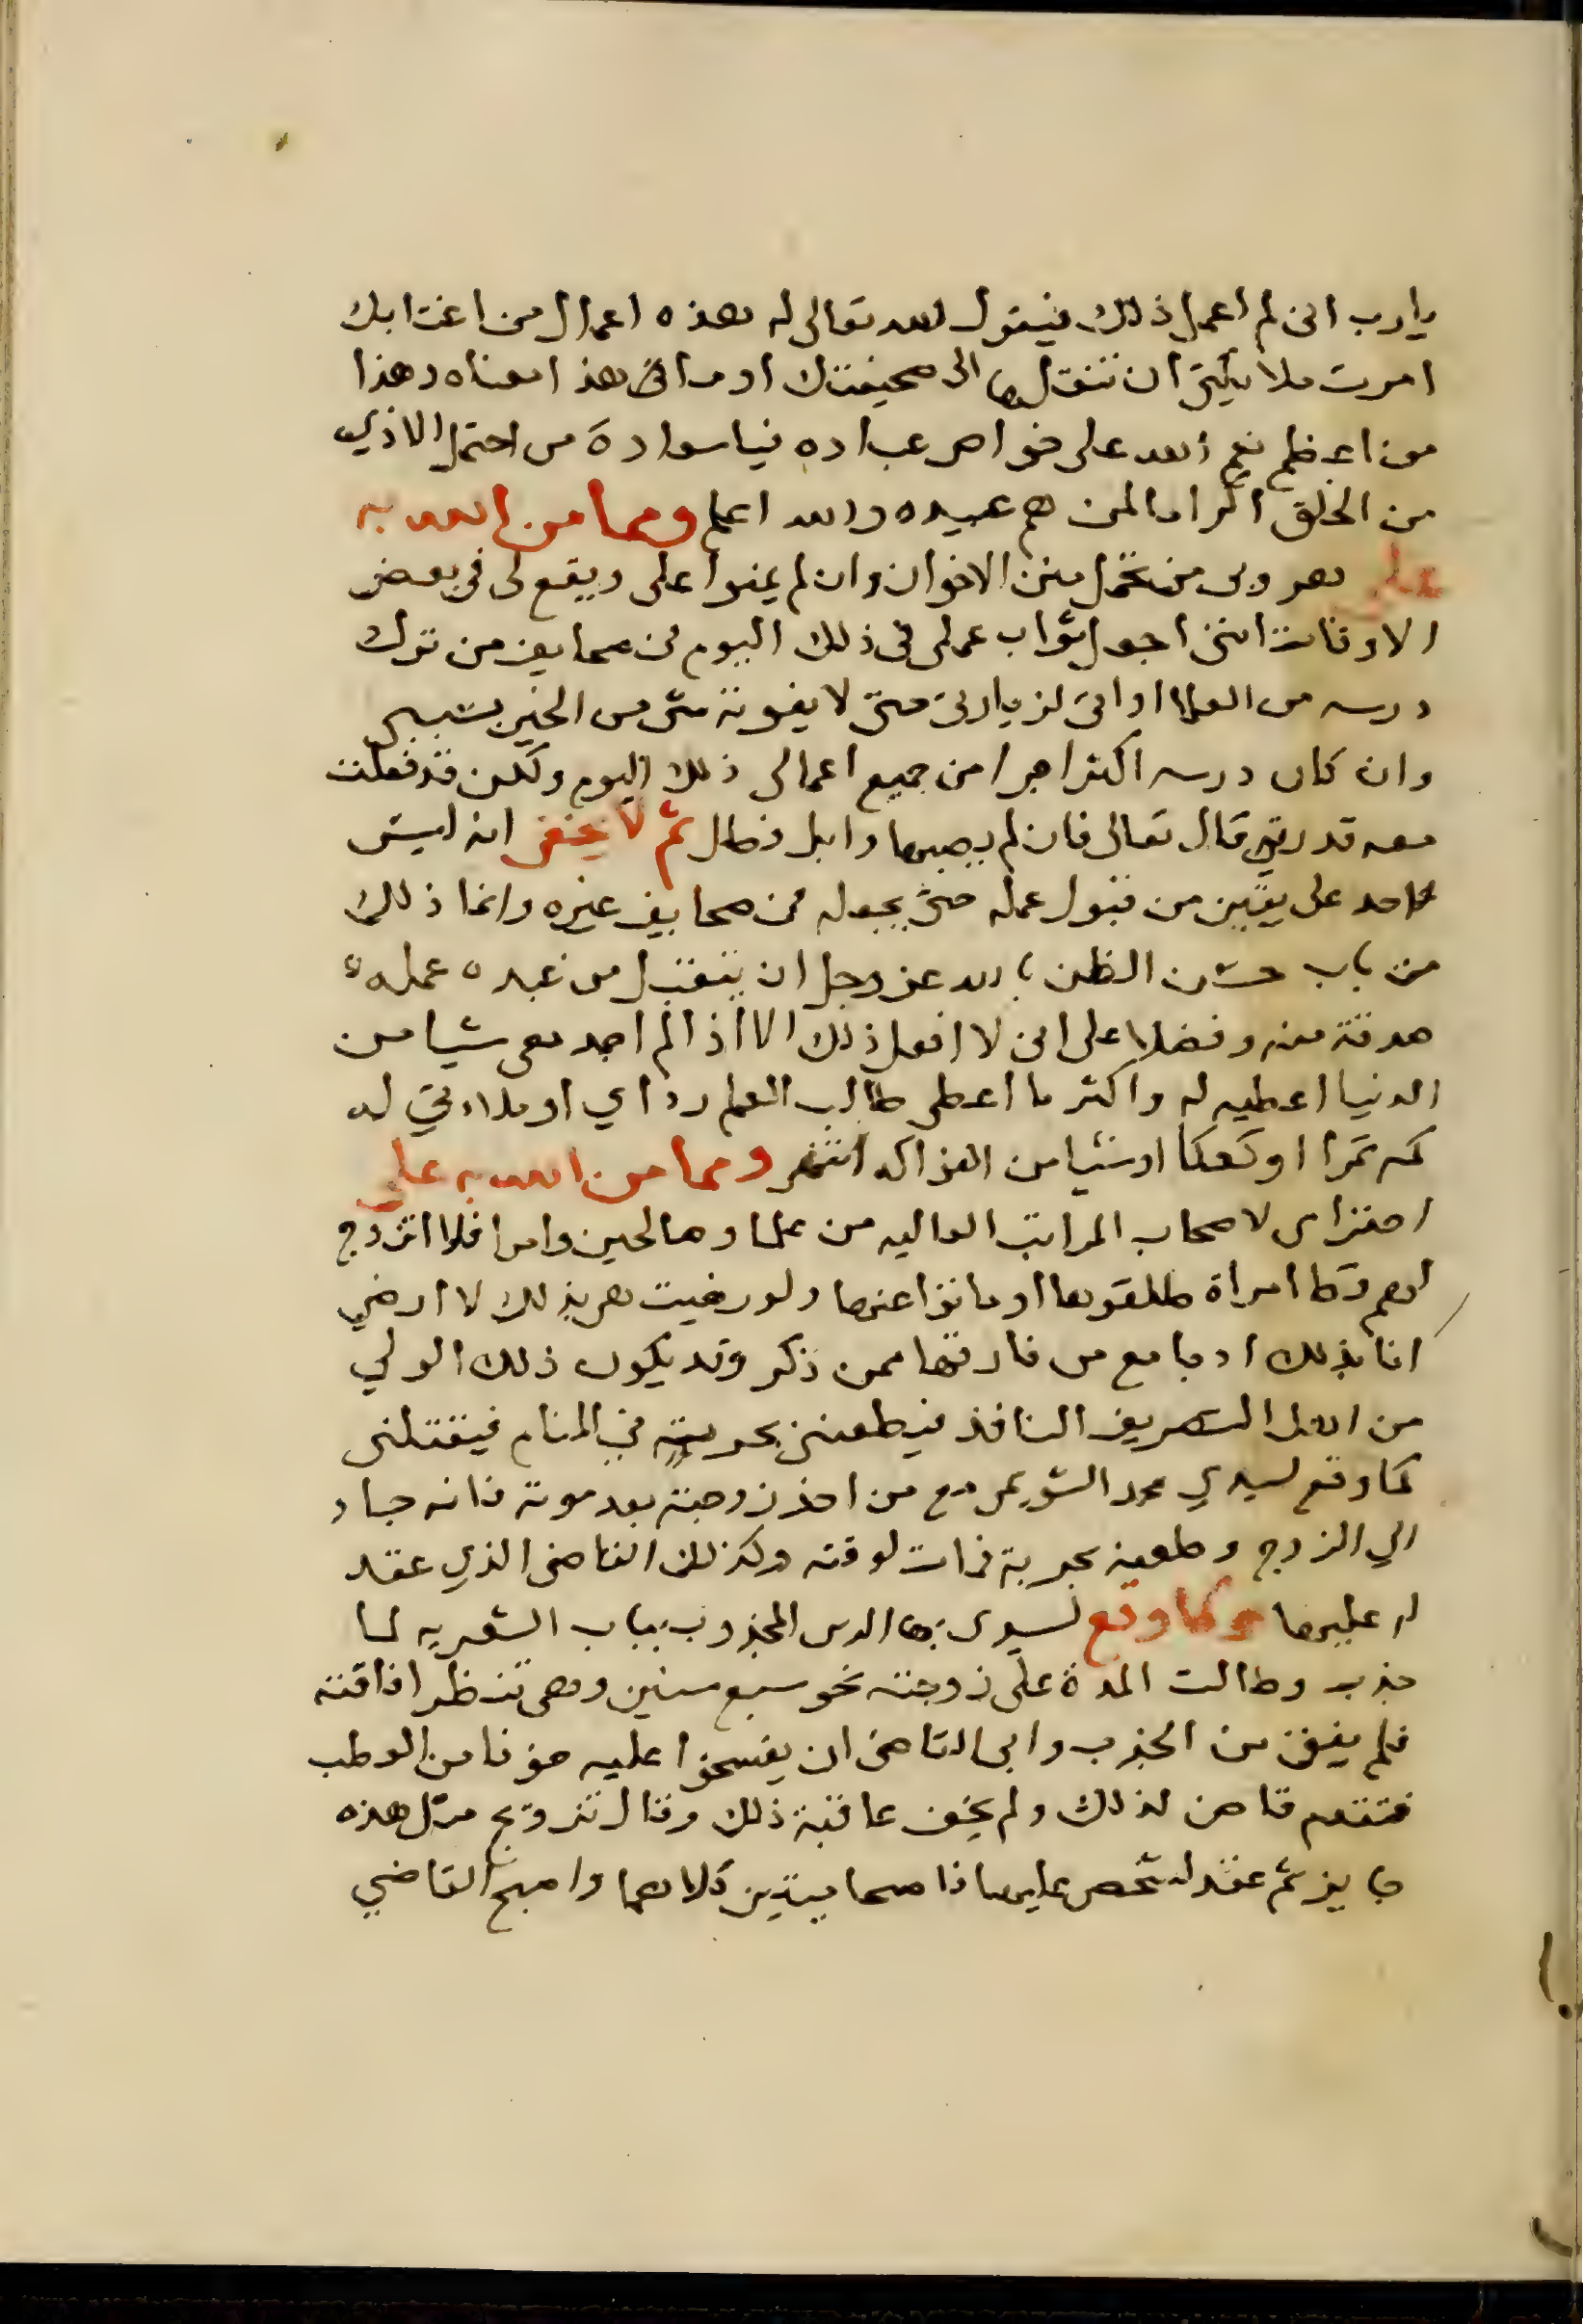 يارب انى لم اعمل ذلك فيقول الله تعالى له هذه اعمال من اغتابك
امرت ملائكتي ان تنقلها الى صحيفتك او ما في هذا معناه وهذا
من اعظم نعم الله على خواص عباده فياسعادة من احتمل الاذي
من الخلق اكراما لمن هم عبيده والله اعلم ومما من الله به
على هروبى من تحمل منن الاخوان وان لم يمنوا على ويقع لى فى بعض
الاوقات اننى اجعل ثواب عملى فى ذلك اليوم فى صحايف من ترك
درسه من العلما واتى لزيارتى حتى لا يفوته شى من الخير بسببى
وان كان درسه اكثر اجرا من جميع اعمالى ذلك اليوم ولكن قد فعلت
معه قدرتي قال تعالى فان لم يصبها وابل فطل ثم لا يخفى انه ليس
لاحد على يقين من قبول عمله حتى يجعله فى صحايف غيره وانما ذلك
من باب حسن الظن بالله عز وجل ان يتقبل من عبده عمله
صدقة منه وفضلا على انى لا افعل ذلك الا اذا لم اجد معى شيا من
الدنيا اعطيه له واكثر ما اعطى طالب العلم رداي او ملات له
كمه تمرا او كعكا او شيا من الفواكه انتهى ومما من الله به على
احترامى لاصحاب المراتب العاليه من علما وصالحين وامرا فلا اتزوج
لهم قط امراة طلقوها او ماتوا عنها ولو رضيت هى بذلك لا ارضي
انا بذلك ادبا مع من فارقها ممن ذكر وقد يكون ذلك الولي
من اهل التصريف النافذ فيطعننى بحربته في المنام فيقتلنى
كما وقع لسيدي محمد الشويمى مع من اخذ زوجته بعد موته فانه جاء
الي الزوج وطعنه بحربة فمات لوقته وكذلك القاضى الذي عقد
له عليها وكما وقع لسيدى بهاالدين المجذوب بباب الشعريه لما
جذب وطالت المدة على زوجته نحو سبع سنين وهى تنتظر افاقته
فلم يفق من الجذب وابى القاضى ان يفسخوا عليه خوفا من العطب
فتقدم قاض لذلك ولم يخف عاقبة ذلك وقال تزويج مثل هذه
جايز ثم عقد لشخص عليها فاصحا ميتين كلاهما واصبح القاضي